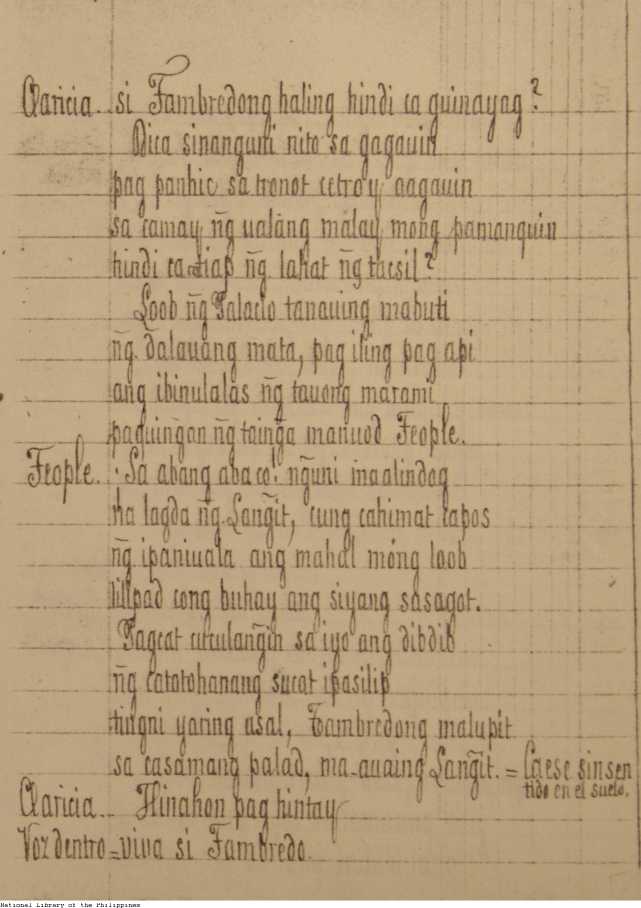 Claricia.. si Fambredong haling hindi ca guinayag?
Dica sinanguni nito sa gagauin
pag panhic sa tronot cetro'y aagauin
sa camay n̄g ualang malay mong pamanquin
hindi ca tiap n̄g lahat n̄g tacsil?
Loob n̄g Palacio tanauing mabuti
n̄g dalauang mata, pag iling pag api
ang ibinulalas n̄g tauong marami
paquingan n̄g tain̄ga manuod Feople.
Feople. Sa abang aba co! n̄guni inaalindog
na lagda n̄g Lan̄git, cung cahimat tapos
n̄g ipaniuala ang mahal mong loob
lilipad cong buhay ang siyang sasagot.
Pagcat cuculan̄gin sa iyo ang dibdib
n̄g catotohanang sucat ipasilip
tingni yaring asal, Fambredong malupit
sa casamang palad, ma-auaing Lan̄git. = Caese sinsen
tido en el suelo.
Claricia.. Hinahon pag hintay
Voz dentro - viva si Fambredo.
National Library of the Philippines